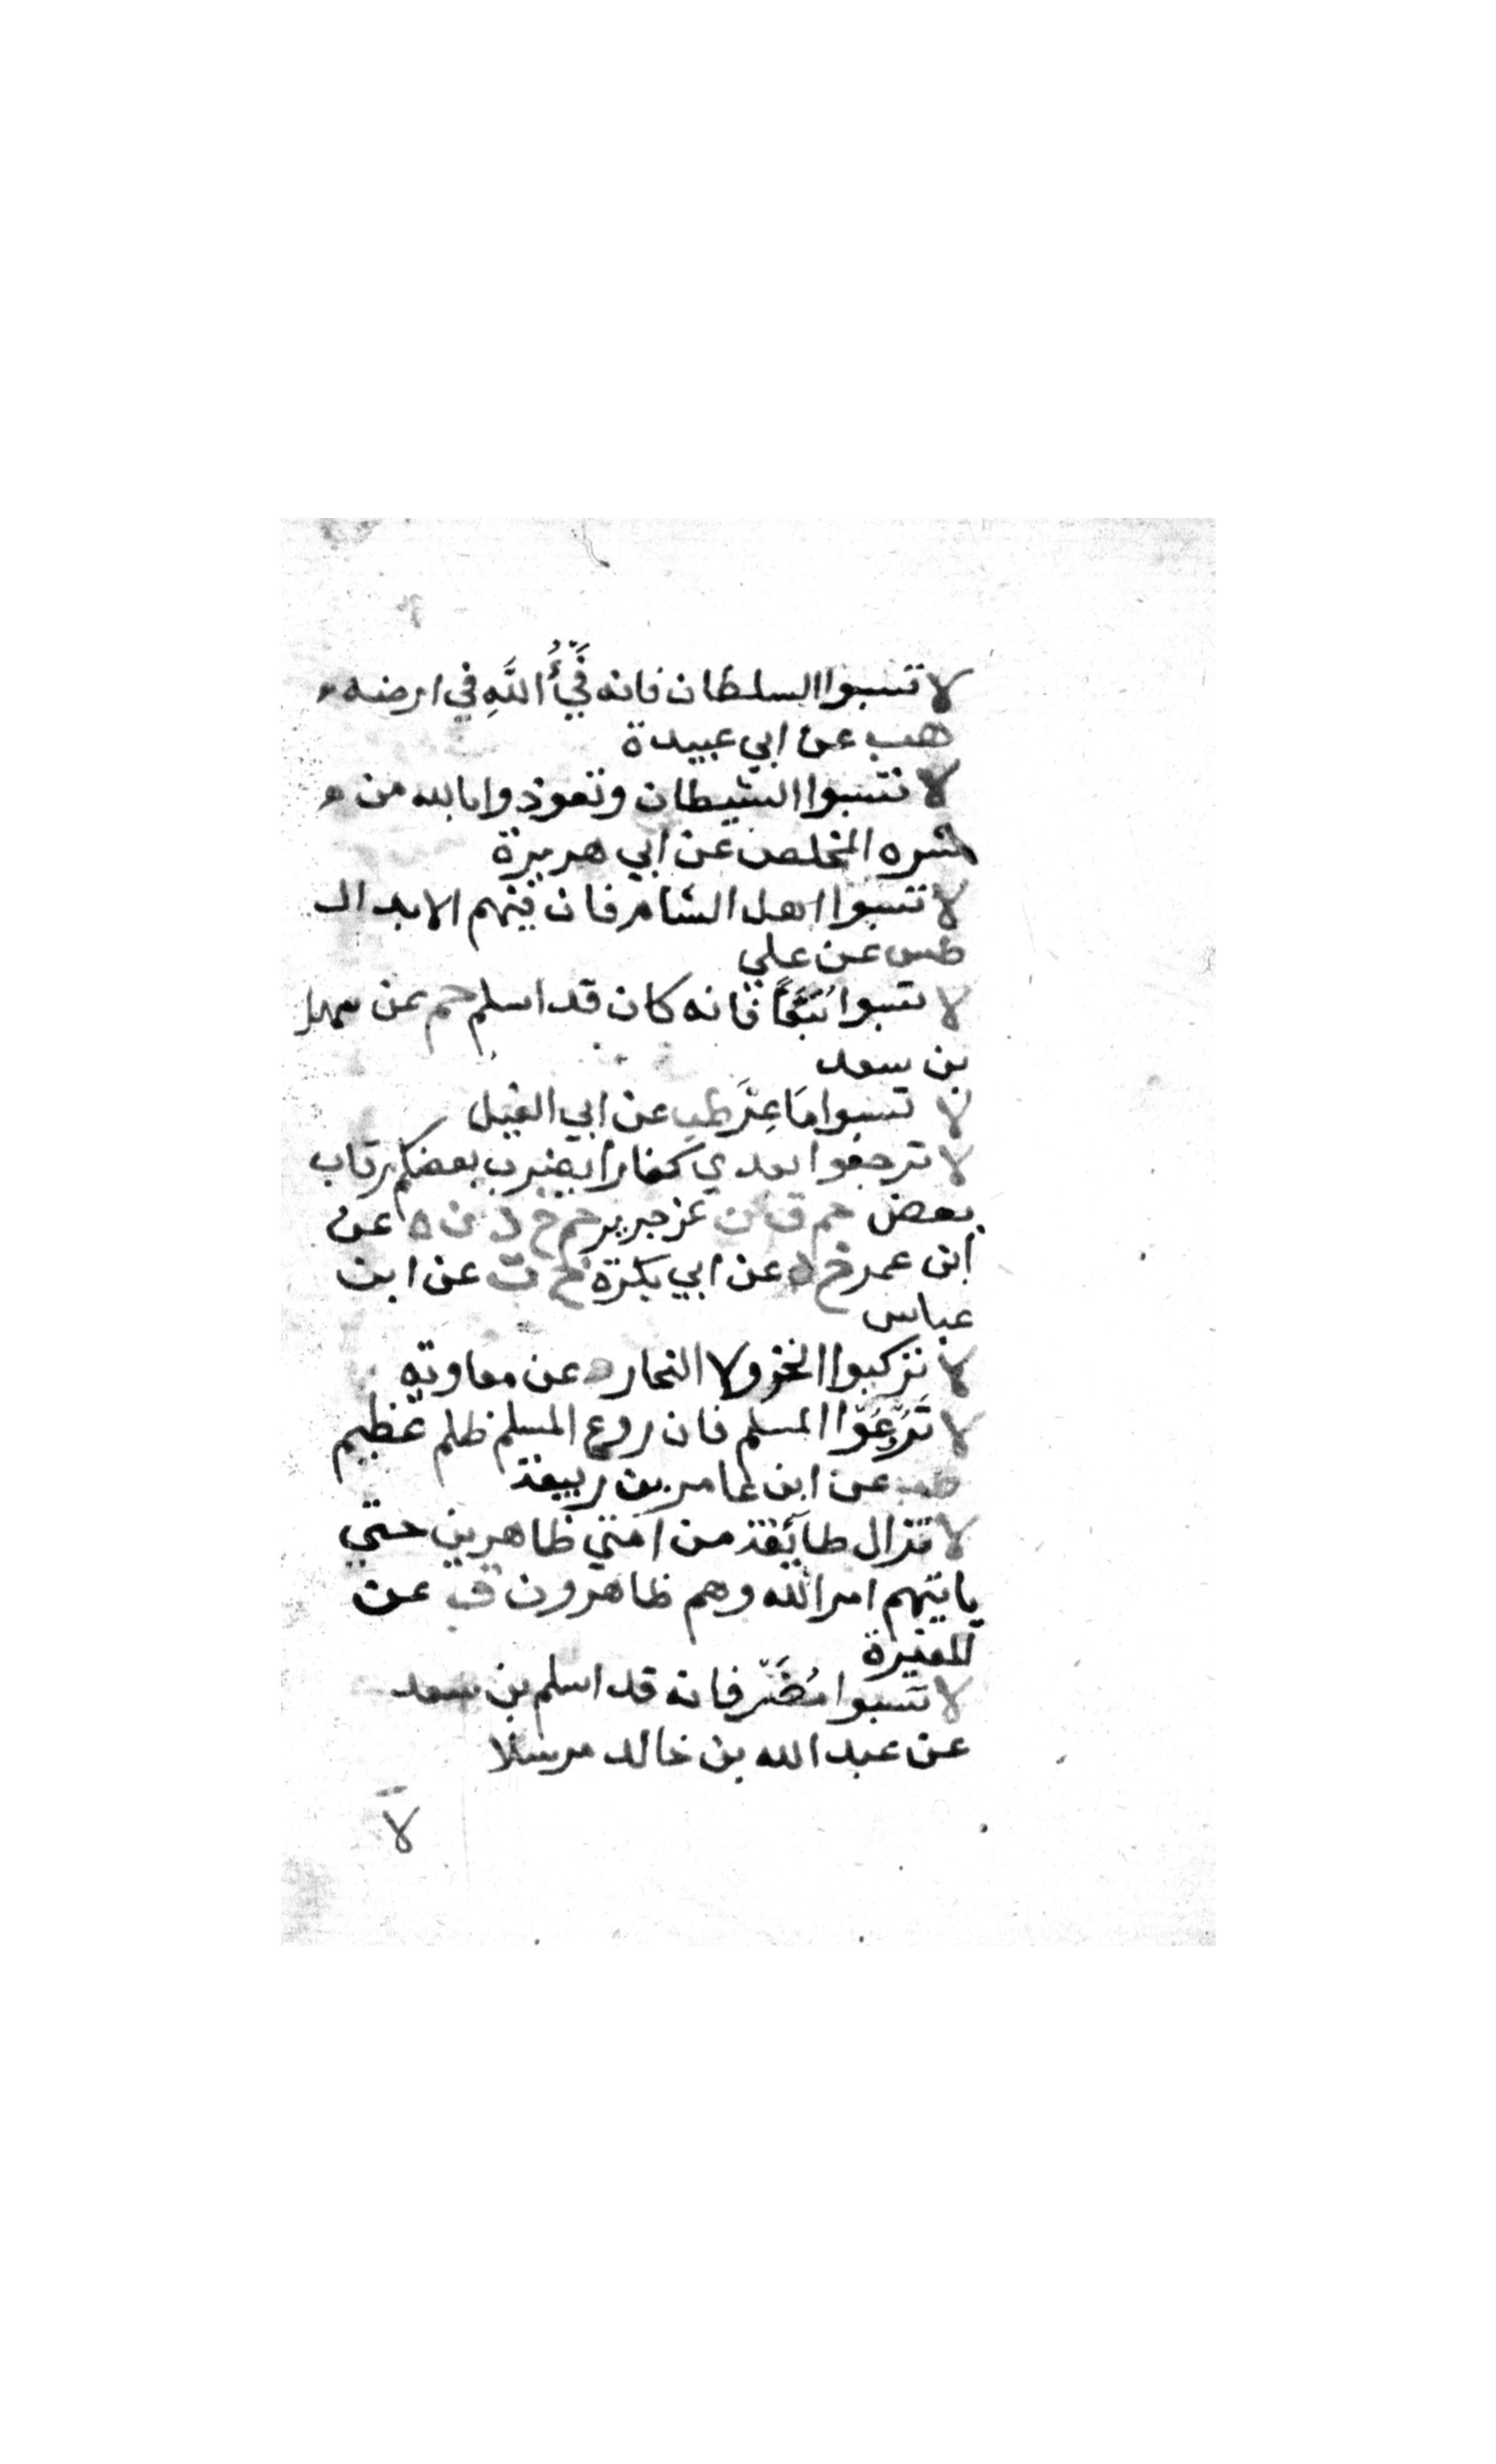 لا تسبوا السلطان فانه فَيْءُ اللَّهِ في ارضه
هب عن ابي عبيدة
لا تسبوا الشيطان وتعوذوا بالله من
شره المخلص عن ابي هريرة
لا تسبوا اهل الشام فان فيهم الابدال
طس عن علي
لا تسبوا تُبَّعًا فانه كان قد اسلم حم عن سهل
بن سعد
لا تسبوا مَاعِزَ طب عن ابي الفيل
لا ترجعوا بعدي كفارا يضرب بعضكم رقاب
بعض حم ق ن عن جرير حم خ د ن ه عن
ابن عمر خ ن عن ابي بكرة خ ت عن ابن
عباس
لا تركبوا الخز ولا النمار د عن معاوية
لا تَرُوِّعُوا المسلم فان روع المسلم ظلم عظيم
طب عن ابن عامر بن ربيعة
لا تزال طائفة من امتي ظاهرين حتي
ياتيهم امر الله وهم ظاهرون ق عن
المغيرة
لا تسبوا مُضَر فانه قد اسلم بن سعد
عن عبد الله بن خالد مرسلا
لا